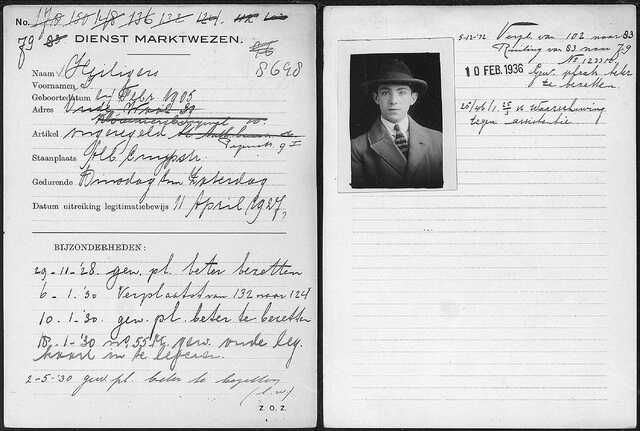 No. 178 150 148 136 132 124
79 83 DIENST MARKTWEZEN.
8698
Naam Heiligers
Voornamen
Geboortedatum Febr 1905
Adres
Artikel ongeregeld
Staanplaats Alb Cuypstr.
Gedurende Dinsdag t/m Zaterdag
Datum uitreiking legitimatiebewijs 11 April 1927,
BIJZONDERHEDEN:
29-11-'28 gew. pl. beter bezetten
6-1-'30 Verplaatst van 132 naar 124
10-1-'30. gew. pl. beter te bezetten
18-1-'30 gew. oude leg.
kaart in te leveren.
2-5-'30 gew pl. beter te bezetten
Z.O.Z.
5-12-'32 Verpl. van 102 naar 83
Ruiling van 83 naar 79
10 FEB. 1936 Gew. plaats beter
te bezetten.
25/46/1 Waarschuwing
tegen assistentie